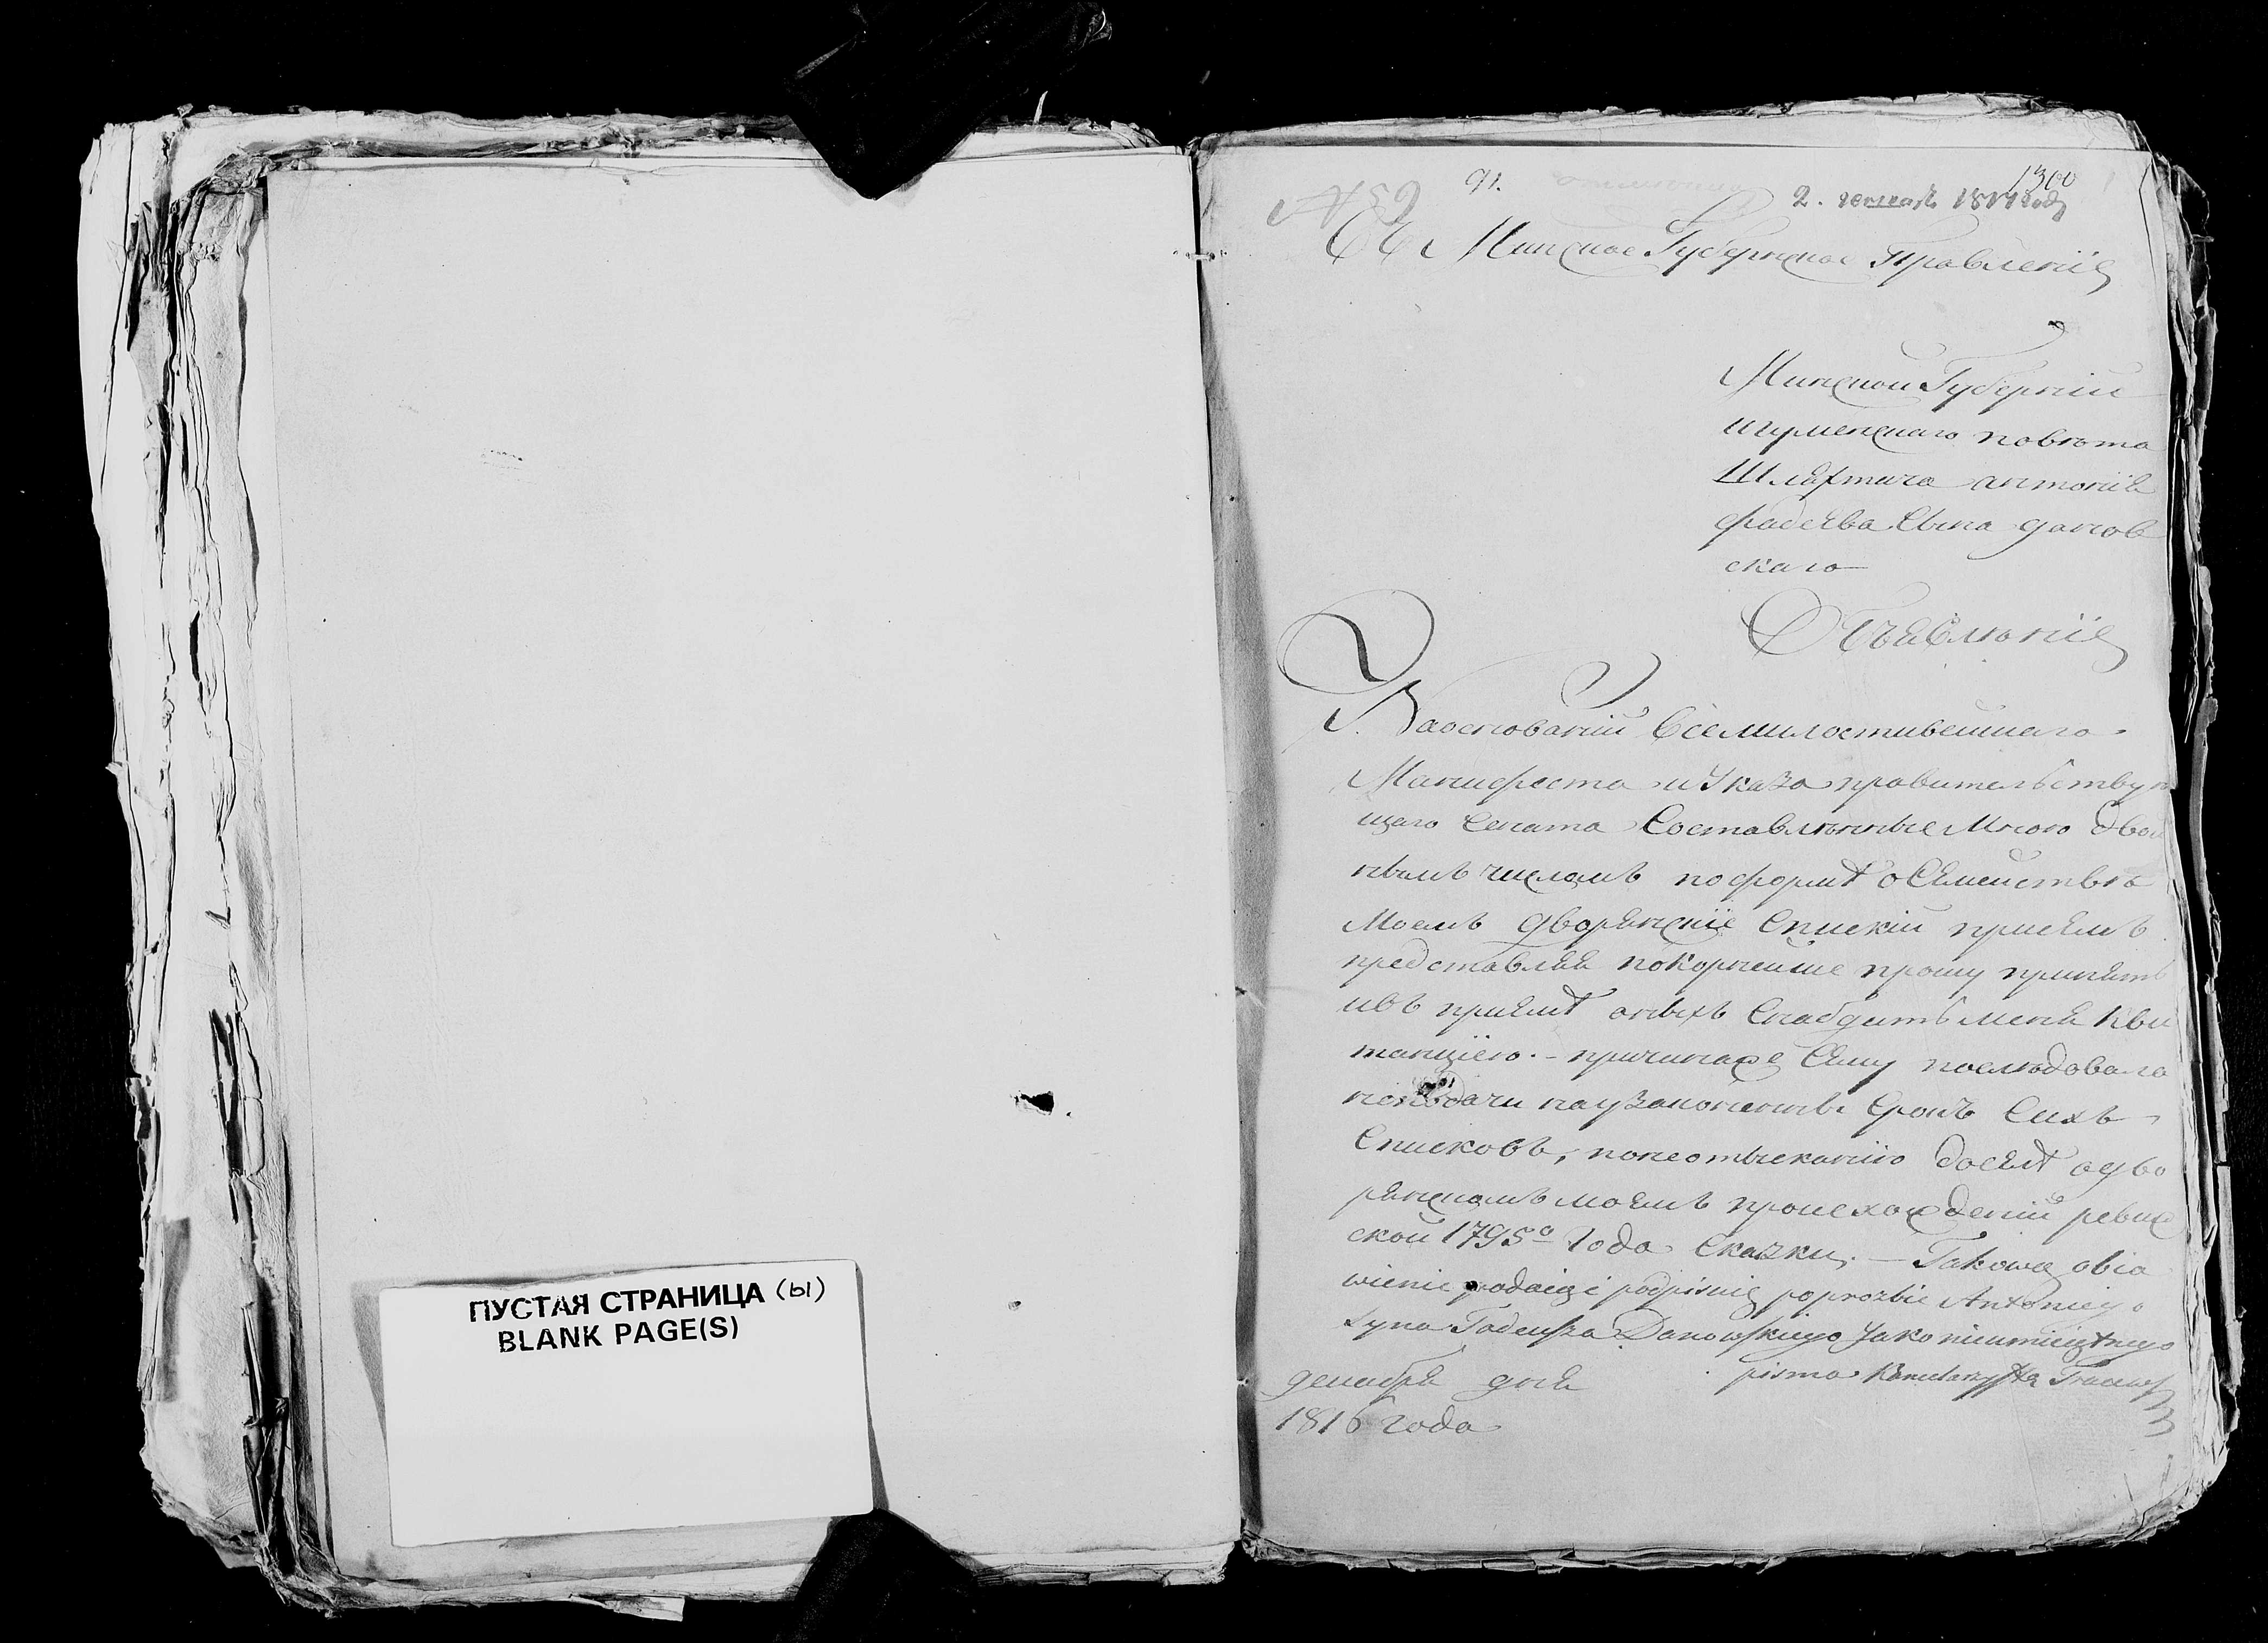 ПУСТАЯ СТРАНИЦА (ы)
BLANK PAGE(S)
№ 59 91. 1300
2. генваря 1817 года
Въ Минское Губернское Правленіе
Минской Губерніи
игуменскаго повѣта
Шляхтича антонія
фадеева Сына данов
скаго
Объявлѣніе
Наоснованіи Всемилостивейшаго
Манифеста и Указа правительствую
щаго Сената Составлѣнные Мною двой
нымъ числомъ по формѣ о Сѣмействѣ
Моемъ дворянскіе Списки присемъ
представляя покорнейше прошу принять
ивъ приямѣ оныхъ Снабдить меня Кви
танціею. - причинаже Сему послѣдовала
неподачи наузаконенны Срокъ Сихъ
Списковъ, понеотысканію досемѣ одво
рянскомъ моемъ происхожденіи ревиж
ской 1795го Года Сказки. — Takowe obia
wienie podaię i podpisuię poprozbie Antoniego
Syna Tadeusza Danowskiego Jako nieumieiętnego
pisma Kancelarzysta
декабря дня
1816 года